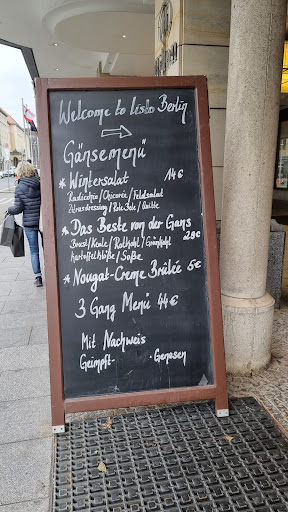 Welcome to Lisbo Berlin
Gänsemenü
* Wintersalat 14€
Radicchio/Chicorée/Feldsalat
Zitrusdressing/Rote Bete/Quitte
* Das Beste von der Gans
Brust/Keule/Rotkohl/Grünkohl 28€
Kartoffelklöße/Soße
* Nougat-Creme Brûlée 5€
3 Gang Menü 44€
Mit Nachweis
Geimpft- -Genesen